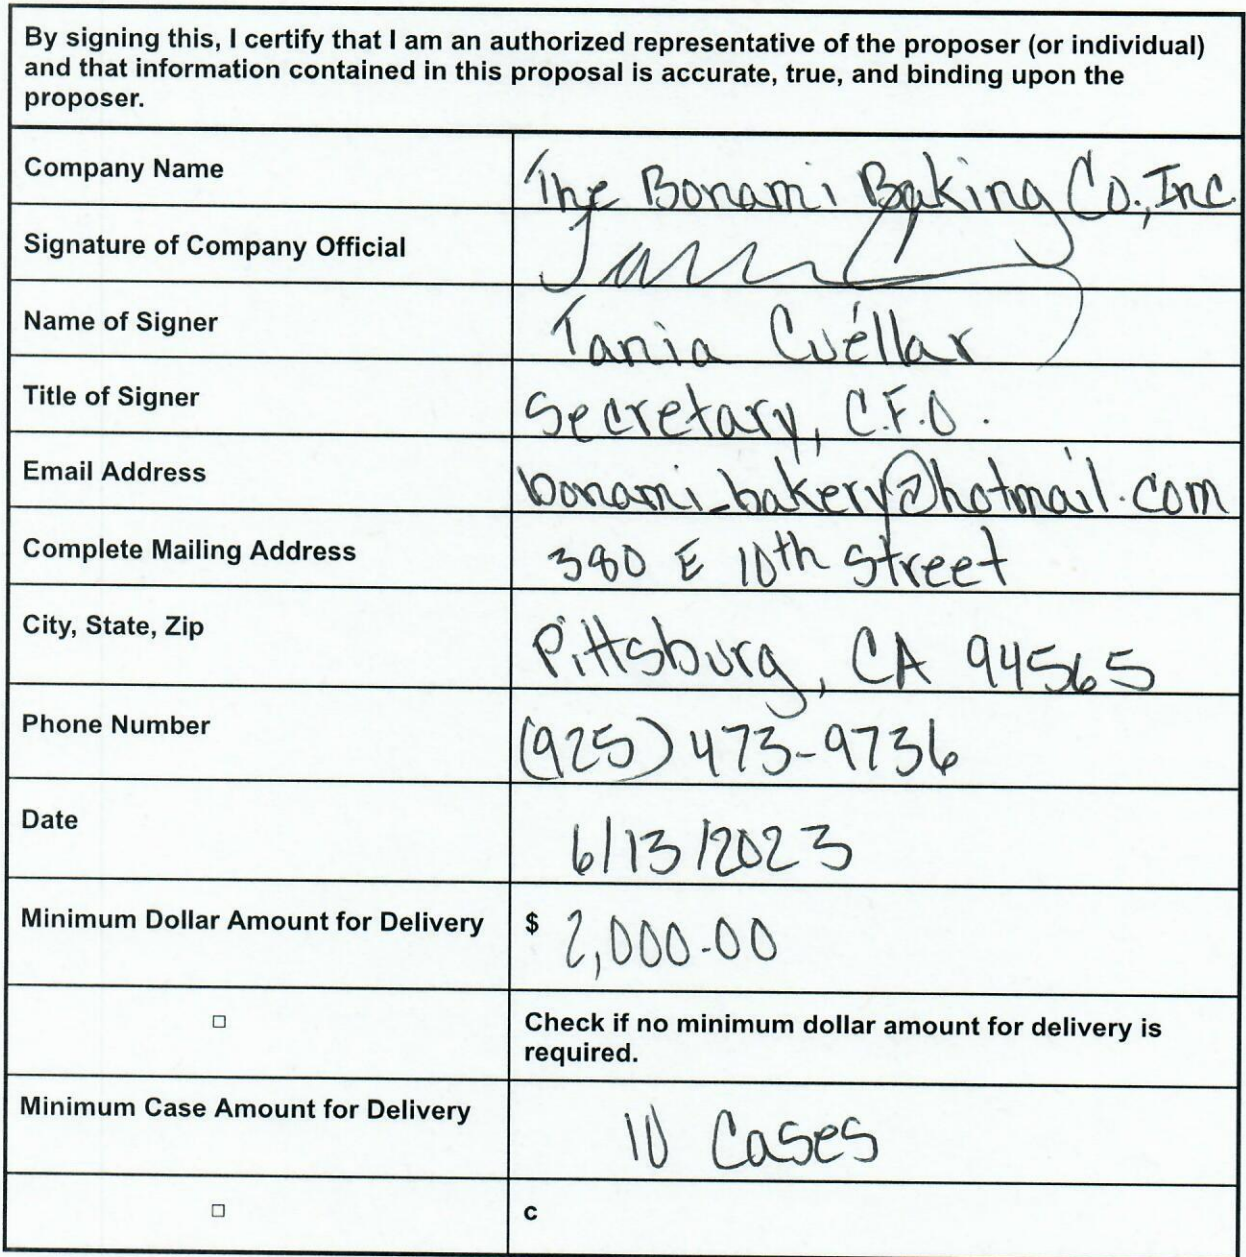 By signing this, I certify that I am an authorized representative of the proposer (or individual)
and that information contained in this proposal is accurate, true, and binding upon the
proposer.
Company Name The Bonami Baking Co., Inc.
Signature of Company Official
Name of Signer Tania Cuéllar
Title of Signer Secretary, C.F.O.
Email Address bonami_bakery@hotmail.com
Complete Mailing Address 380 E 10th Street
City, State, Zip Pittsburg, CA 94565
Phone Number (925) 473-9736
Date 6/13/2023
Minimum Dollar Amount for Delivery $ 2,000.00
□ Check if no minimum dollar amount for delivery is
required.
Minimum Case Amount for Delivery 10 Cases
□ c